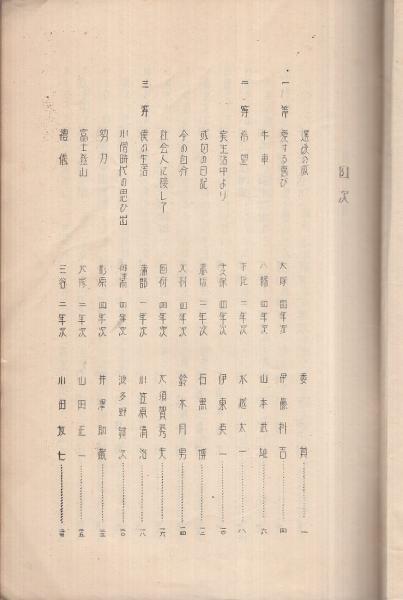 目次
選後の感 委員 一
一等 愛する喜び 大塚 四年次 伊藤利吉 四
牛車 八幡 四年次 山本武雄 六
二等 希望 下地 三年次 水越太一 八
実生活中より 大塚 四年次 伊東英一 一〇
或日の日記 三年次 石黒博 一二
今の自分 大村 四年次 鈴木月男 一四
社会人に接して 国府 四年次 大須賀秀夫 一六
三等 僕の生活 蒲郡 一年次 小笠原清治 一八
小僧時代の思ひ出 四年次 波多野 次 二〇
努力 四年次 井澤助
富士登山 大塚 三年次 山田正一
禮儀 三谷 二年次 小田友七